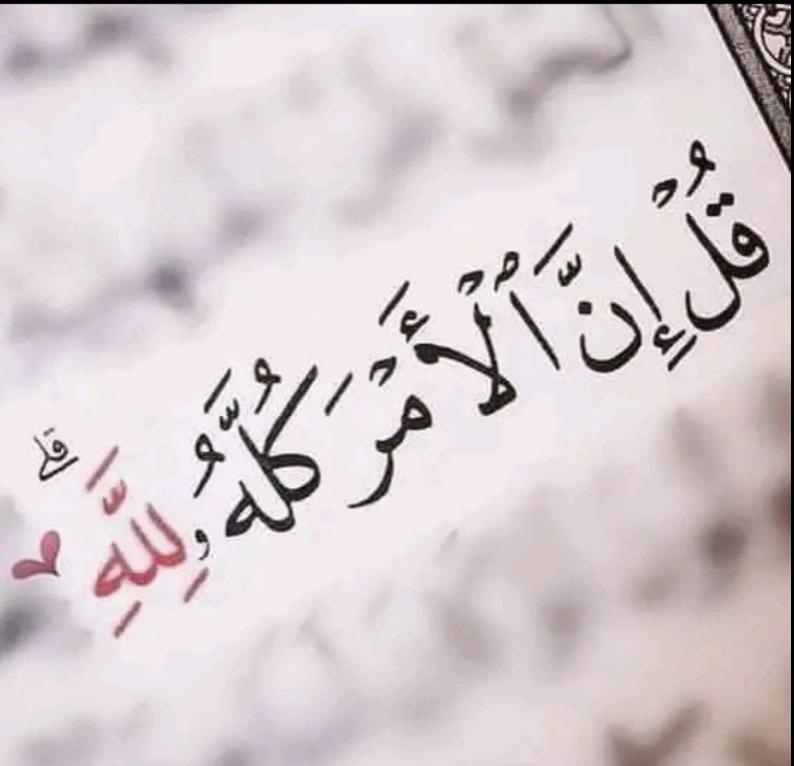 قُلْ إِنَّ ٱلْأَمْرَ كُلَّهُۥ لِلَّهِۗ